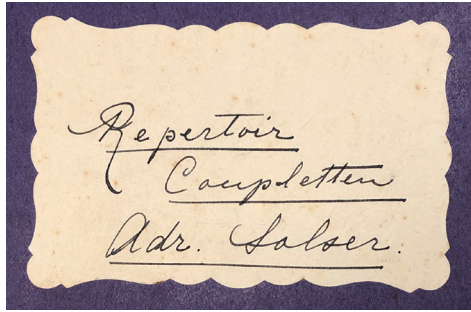 Repertoir
Coupletten
Adr. Solser.